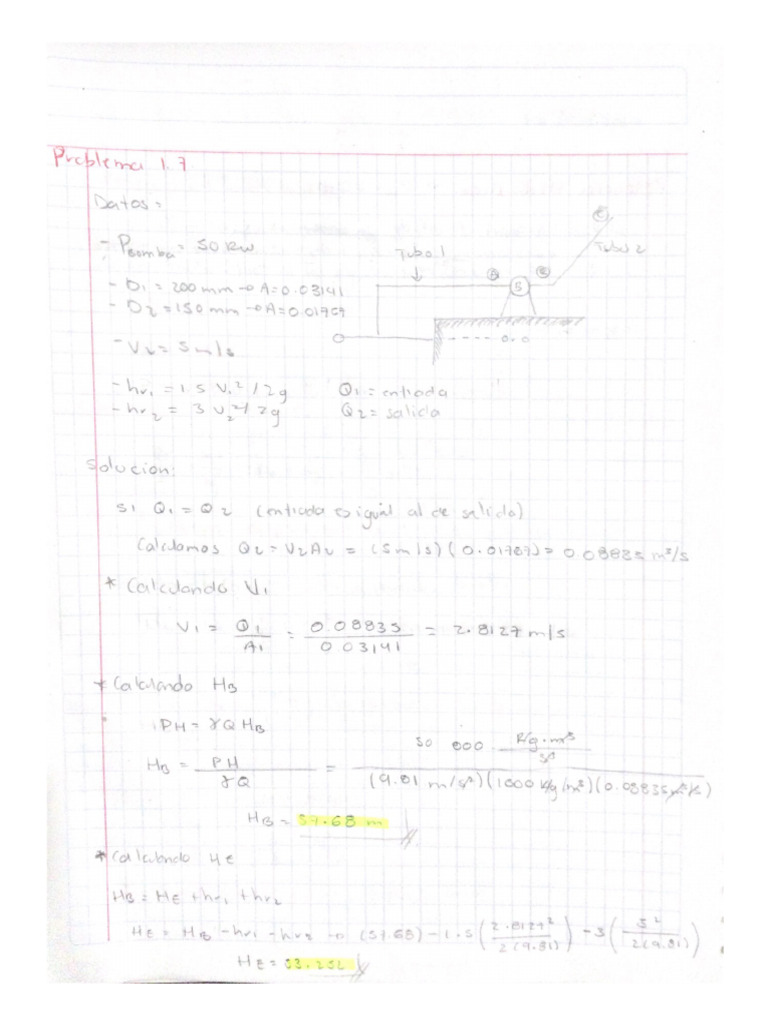 Problema 1.7
Datos:
- PBomba = 50 kW
- D1 = 200 mm → A = 0.03141
- D2 = 150 mm → A = 0.01767
- V2 = 5 m/s
- hr1 = 1.5 V1²/2g
- hr2 = 3 V2²/2g
Tubo 1
Tubo 2
B
0-0
Q1 = entrada
Q2 = salida
Solucion:
Si Q1 = Q2 (entrada es igual al de salida)
Calculamos Q2 = V2A2 = (5m/s)(0.01767) = 0.08835 m³/s
* Calculando V1
V1 = Q1/A1 = 0.08835/0.03141 = 2.8127 m/s
* Calculando HB
PH = γQHB
HB = PH/γQ = 50 000 Kg·m²/s³ / (9.81 m/s²)(1000 Kg/m³)(0.08835 m³/s)
HB = 57.68 m
* Calculando HE
HB = HE + hr1 + hr2
HE = HB - hr1 - hr2 → (57.68) - 1.5 (2.8127²/2(9.81)) - 3 (5²/2(9.81))
HE = 53.252